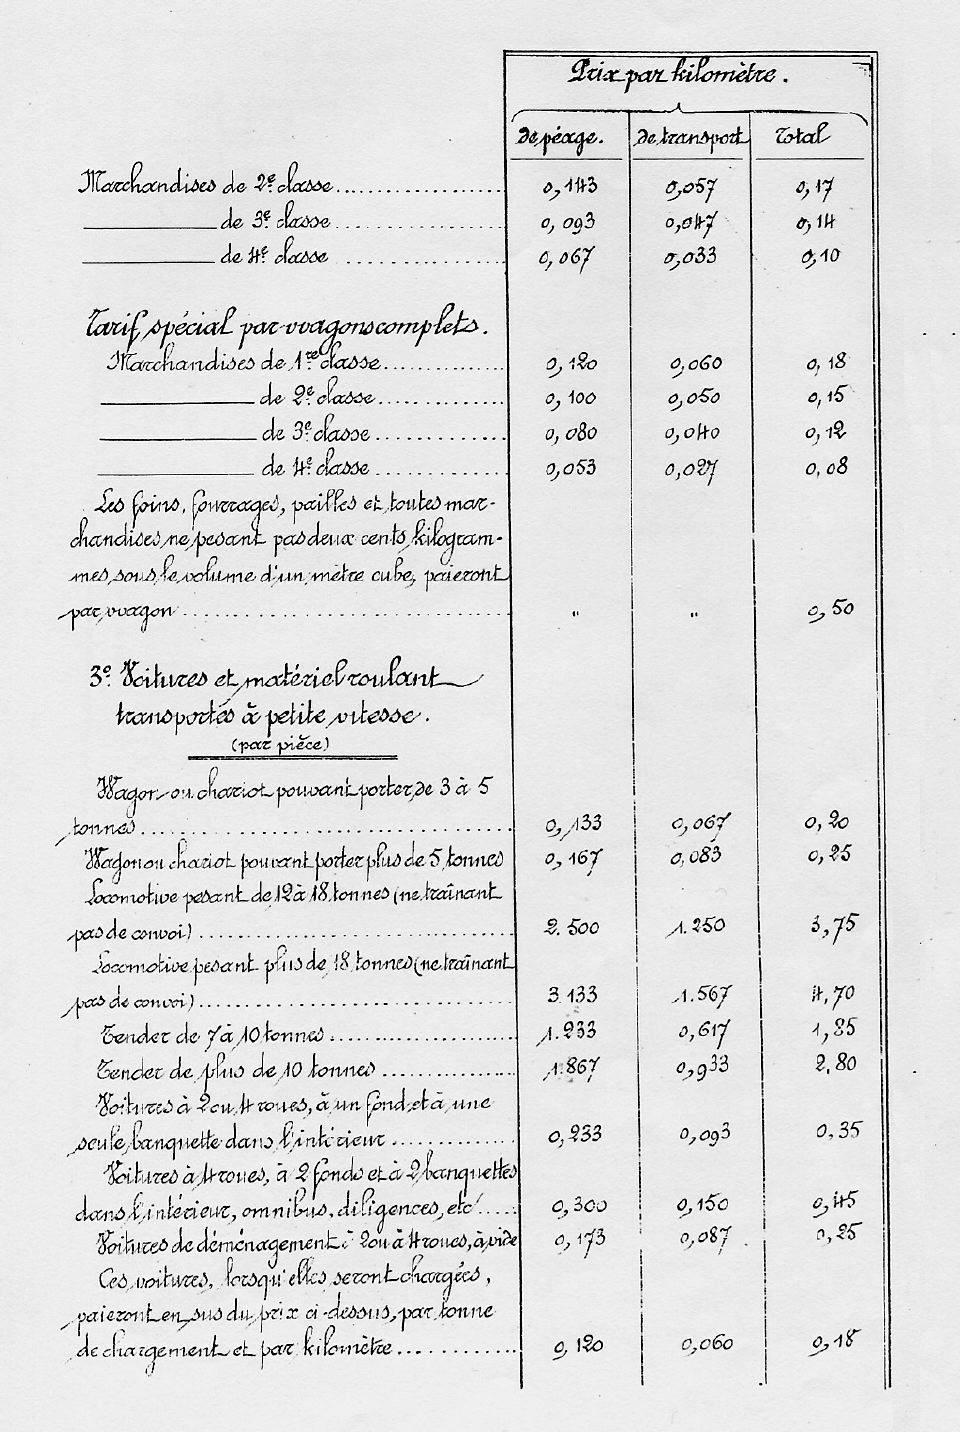 Prix par kilomètre.
de péage. de transport Total
Marchandises de 2e classe.................... 0,143 0,057 0,17
________ de 3e classe.................... 0,093 0,047 0,14
________ de 4e classe .................... 0,067 0,033 0,10
Tarif spécial par wagons complets.
Marchandises de 1re classe............... 0,120 0,060 0,18
________ de 2e classe............... 0,100 0,050 0,15
________ de 3e classe............... 0,080 0,040 0,12
________ de 4e classe ............... 0,053 0,027 0,08
Les foins, fourrages, pailles et toutes mar-
chandises ne pesant pas deux cents kilogram-
mes sous le volume d'un mètre cube, paieront
par wagon .............................. " " 0,50
3o. Voitures et matériel roulant
transportés à petite vitesse.
(par pièce)
Wagon ou chariot pouvant porter de 3 à 5
tonnes.............................. 0,133 0,067 0,20
Wagon ou chariot pouvant porter plus de 5 tonnes 0,167 0,083 0,25
Locomotive pesant de 12 à 18 tonnes (ne traînant
pas de convoi) .............................. 2.500 1.250 3,75
Locomotive pesant plus de 18 tonnes (ne traînant
pas de convoi).............................. 3.133 1.567 4,70
Tender de 7 à 10 tonnes.................... 1.233 0,617 1,85
Tender de plus de 10 tonnes ............... 1.867 0,933 2,80
Voitures à 2 ou 4 roues, à un fond et à une
seule banquette dans l'intérieur ............... 0,233 0,093 0,35
Voitures à 4 roues, à 2 fonds et à 2 banquettes
dans l'intérieur, omnibus, diligences, etc..... 0,300 0,150 0,45
Voitures de déménagement à 2 ou à 4 roues, à vide 0,173 0,087 0,25
Ces voitures, lorsqu'elles seront chargées,
paieront en sus du prix ci-dessus, par tonne
de chargement et par kilomètre ............... 0,120 0,060 0,18